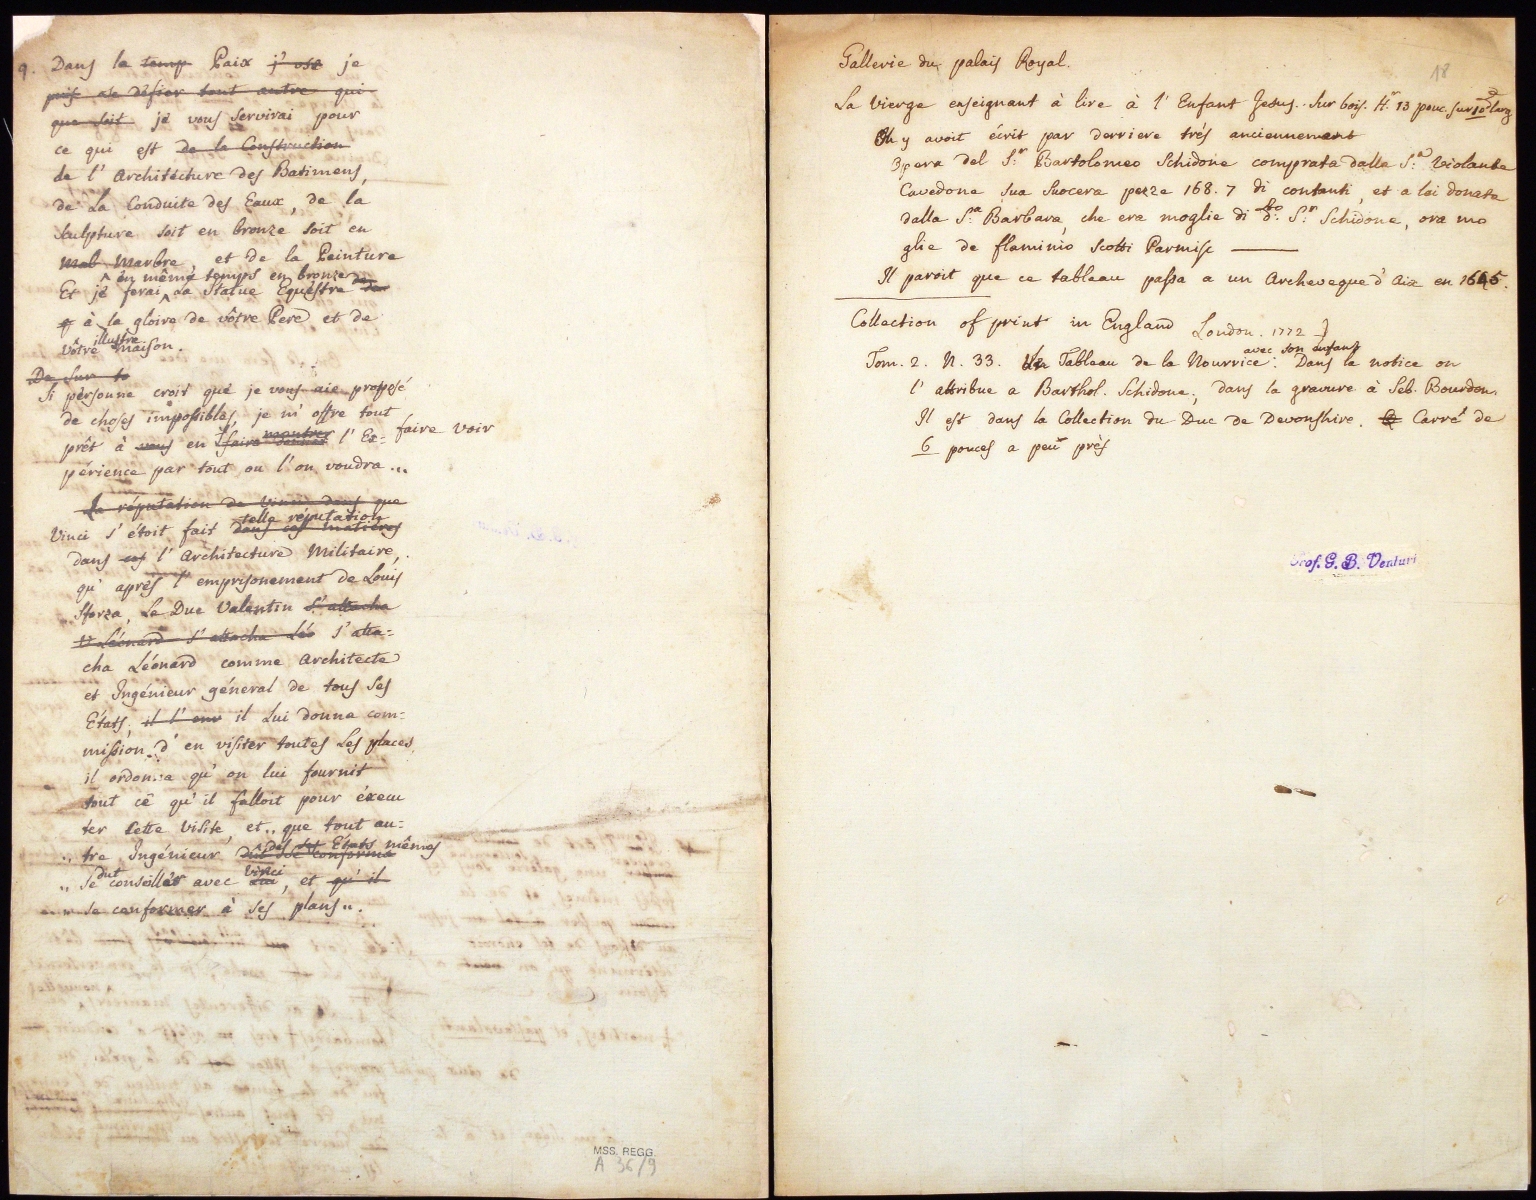 9. Dans le temp Paix j'ose je
puis me défier tout autre qui
que soit je vous servirai pour
ce qui est de la Construction
de l'Architécture des Batimens,
de la Conduite des Eaux, de la
Sculpture soit en bronze soit en
Mab Marbre, et de la Peinture
en même temps en bronze
Et je ferai la Statue Equéstre
à la gloire de vôtre Pere et de
illustre
vôtre maison.
De sur to
Si pérsonne croit que je vous aie proposé
de choses impossibles, je m'offre tout
prêt à vous en faire montrer l'Ex= faire voir
périence par tout ou l'on voudra...
La réputation de Vinci dans que
telle réputation
Vinci s'étoit fait dans ces matières
dans ces l'Architecture Militaire,
qu'après l'emprisonement de Louis
Sforza, Le Duc Valentin s'attacha
Léonard s'attacha Léo s'atta=
cha Léonard comme Architecte
et Ingénieur géneral de tous ses
Etats, il l'env il lui donna com=
mission d'en visiter toutes les places,
il ordonna qu'on lui fournit
tout cê qu'il falloit pour éxecu
ter cette visite, et „ que tout au=
des ses Etats mêmes
„ tre Ingénieur dût se conforma
dut Vinci
„ se conseillér avec lui, et qu'il
se conformer à ses plans „.
MSS. REGG.
A 36/9
18
Gallerie du palais Royal.
La Vierge enseignant à lire à l'Enfant Jesus. Sur bois. H.r 13 pouc. sur 10 larg
Il y avoit écrit par derriere trés anciennement
Opera del S.r Bartolomeo Schidone comprata dalla S.a Violante
Cavedone sua Suocera pezze 168.7 di contanti, et a lei donata
dalla S.a Barbara, che era moglie di d.to S.r Schidone, ora mo
glie de flaminio Scotti Parmisc
Il paroit que ce tableau passa a un Archeveque d'Aix en 1665.
Collection of print in England London. 1772
avec son enfant
Tom. 2. N. 33. Un Tableau de la Nourrice. Dans la notice on
l'attribue a Barthol. Schidone, dans la gravure à Séb. Bourdon.
Il est dans la Collection du Duc de Devonshire. Carré de
6 pouces a peu près
Prof. G. B. Venturi